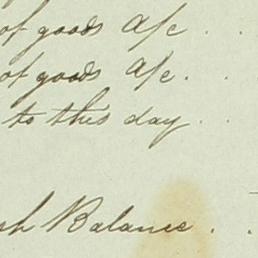 of goods a/c . .
of goods a/c . .
to this day . .
sh Balance . .